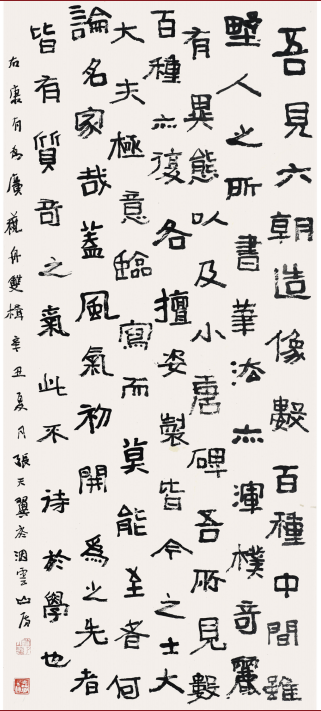 吾見六朝造像數百種中間雖
野人之所書筆法亦渾樸奇麗
有異態以及小唐碑吾所見數
百種亦復各擅姿製皆今之士大
大夫極意臨寫而莫能至者何
論名家哉蓋風氣初開為之先者
皆有質奇之氣此不待於學也
右康有為廣藝舟雙楫辛丑夏月張天翼於洇雲山房